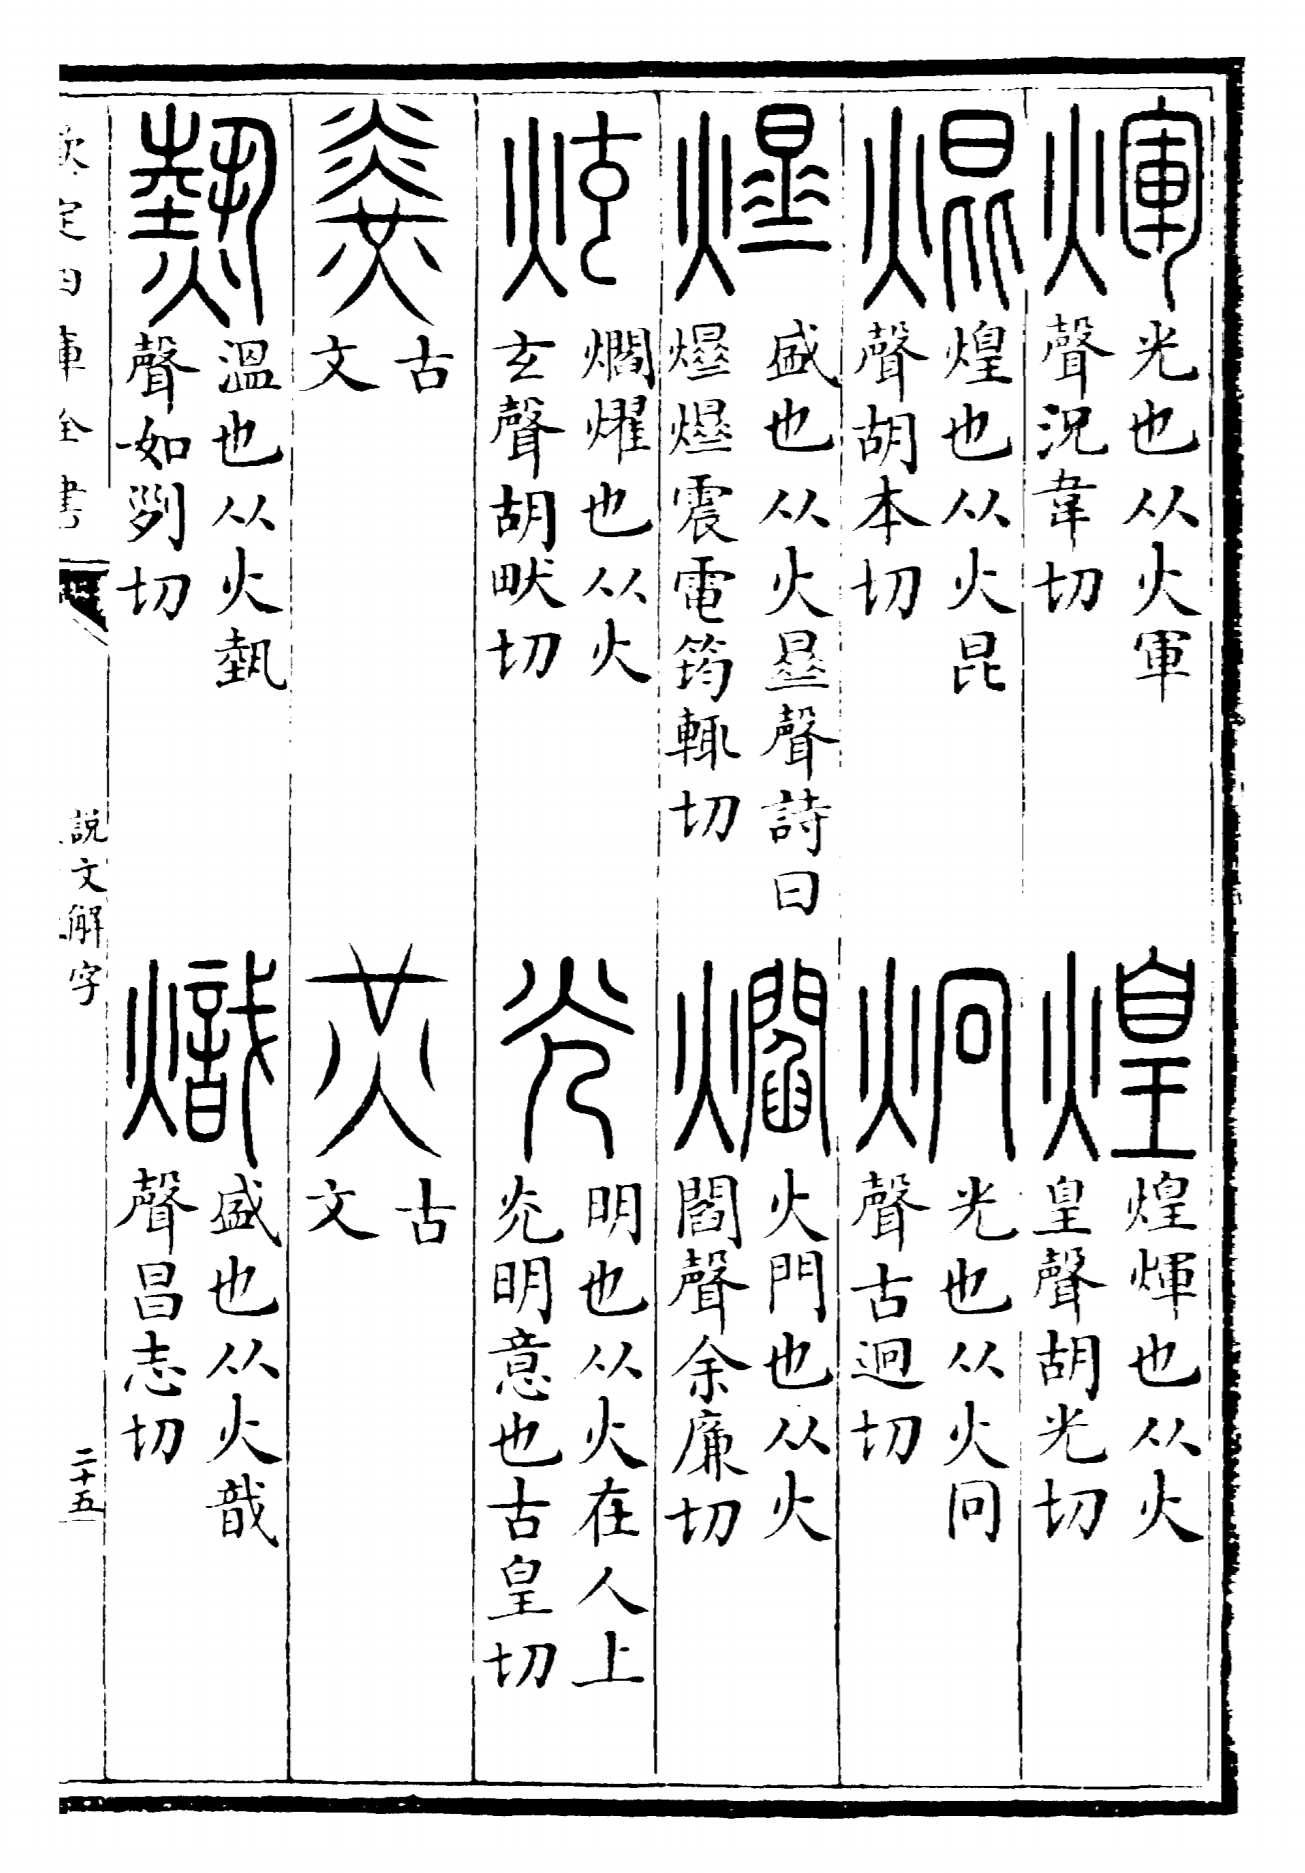 煇光也从火軍聲況韋切煌煌煇也从火皇聲胡光切
焜煌也从火昆聲胡本切炯光也从火冋聲古迥切
爗盛也从火曅聲詩曰爗爗震電筠輒切爓火門也从火閻聲余廉切
炫爓燿也从火玄聲胡畎切光明也从火在人上光明意也古皇切
𤎫古文炗古文
熱溫也从火埶聲如列切熾盛也从火戠聲昌志切
欽定四庫全書
說文解字
二十五